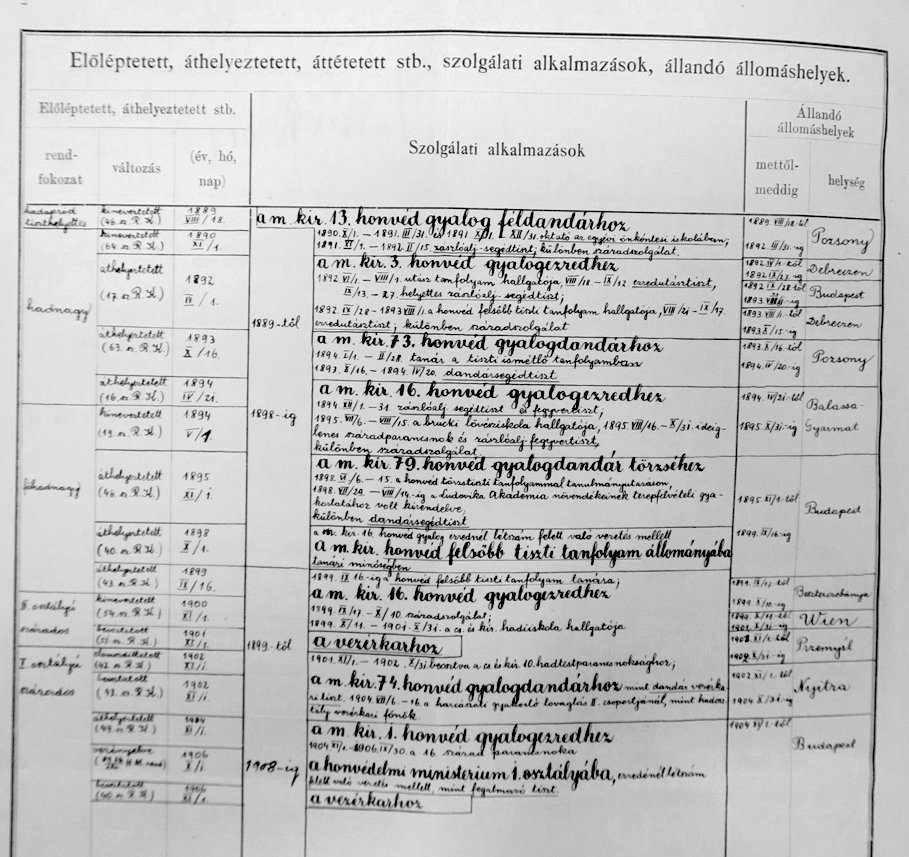 Előléptetett, áthelyeztetett, áttétetett stb., szolgálati alkalmazások, állandó állomáshelyek.
Előléptetett, áthelyeztetett stb.
rend-
fokozat
változás
(év, hó,
nap)
Szolgálati alkalmazások
Állandó
állomáshelyek
mettől-
meddig
helység
hadapród
tiszthelyettes
kineveztetett
(46. n. R. K.)
1889
VIII/18.
a m. kir. 13. honvéd gyalog féldandárhoz
1889 VIII/18-tól
kineveztetett
(64. n. R. K.)
1890
XI/1.
1890. X/1. – 1891. III/31. és 1891. X/1. – XII/31. oktató az egyévi önkéntesi iskolában;
1891. VI/1. – 1892. II/15. zászlóalj-segédtiszt, különben századszolgálat.
1892. III/31-ig
Pozsony
hadnagy
áthelyeztetett
(17. n. R. K.)
1892
IV/1.
a m. kir. 3. honvéd gyalogezredhez
1892 VI/1. – VIII/1. utász tanfolyam hallgatója, VIII/18 – IX/12. ezredutásztiszt,
IX/13. – 27. helyettes zászlóalj-segédtiszt;
1892. IX/28 – 1893 VIII/1. a honvéd felsőbb tiszti tanfolyam hallgatója, VIII/21 – IX/17.
ezredutásztiszt; különben századszolgálat
1892 IV/1-től
1892 IX/27-ig
Debreczen
1892 IX/28-tól
1893 VIII/1-ig
Budapest
1893 VIII/1-től
1893 X/15-ig
Debreczen
1889-től
áthelyeztetett
(63. n. R. K.)
1893
X/16.
a m. kir. 73. honvéd gyalogdandárhoz
1894. I/1. – II/28. tanár a tiszti ismétlő tanfolyamban
1893. X/16. – 1894. IV/20. dandársegédtiszt
1893. X/16-tól
1894. IV/20-ig
Pozsony
áthelyeztetett
(16. n. R. K.)
1894
IV/21.
a m. kir. 16. honvéd gyalogezredhez
1894. XII/1. – 31. zászlóalj segédtiszt és fegyvertiszt;
1894. IV/21-től
Balassa-
Gyarmat
1898-ig
kineveztetett
(19. n. R. K.)
1894
V/1.
1895. VII/6. – VIII/15. a brucki lövésziskola hallgatója, 1895. VIII/16. – X/31. ideig-
lenes századparancsnok és zászlóalj fegyvertiszt,
különben századszolgálat
1895. X/31-ig
főhadnagy
áthelyeztetett
(46. n. R. K.)
1895
XI/1.
a m. kir. 79. honvéd gyalogdandár törzséhez
1898. VI/6. – 15. a honvéd törzstiszti tanfolyammal tanulmányutazáson,
1898. VII/29. – VIII/14-ig a Ludovika Akadémia növendékeinek terepfelvételi gya-
korlatához volt kirendelve,
különben dandársegédtiszt
1895 XI/1-től
Budapest
áthelyeztetett
(40. n. R. K.)
1898
X/1.
a m. kir. 16. honvéd gyalog ezrednél létszám felett való vezetés mellett
a m. kir. honvéd felsőbb tiszti tanfolyam állományába
tanári minőségben
1899. IX/16-ig
áthelyeztetett
(43. n. R. K.)
1899
IX/16.
1899 IX 16-ig a honvéd felsőbb tiszti tanfolyam tanára;
a m. kir. 16. honvéd gyalogezredhez
1899. IX/17. – X/10. századszolgálat;
1899. X/11. – 1901. X/31. a cs. és kir. hadiiskola hallgatója
1899. IX/17-től
1899. X/10-ig
Beszterczebánya
II. osztályú
százados
kineveztetett
(54. n. R. K.)
1900
XI/1.
1899. X/11-től
1901. X/31-ig
Wien
1899-től
beosztatott
1901
XI/1.
a vezérkarhoz
1901. XI/1. – 1902. X/31 beosztva a cs és kir. 10. hadtestparancsnoksághoz;
1901. XI/1-től
1902. X/31-ig
Przemyśl
I. osztályú
százados
1902
XI/1.
beosztatott
(43. n. R. K.)
1902
XI/1.
a m. kir. 74. honvéd gyalogdandárhoz mint dandár vezérka-
ri tiszt, 1904. VIII/6. – 16. a harcászati gyakorló lovaglás II. csoportjánál, mint hadosz-
tály vezérkari főnök.
1902. XI/1-től
1904 X/31-ig
Nyitra
áthelyeztetett
(49. n. R. K.)
1904
XI/1.
a m. kir. 1. honvéd gyalogezredhez
1904 XI/1. – 1906. IX/30. a 16. század parancsnoka
1904 XI/1-től
Budapest
1906
X/1.
1908-ig
a honvédelmi ministerium 1. osztályába, ezredénél létszám
felett való vezetés mellett, mint fogalmazó tiszt
beosztatott
(46. n. R. K.)
1906
XI/1.
a vezérkarhoz